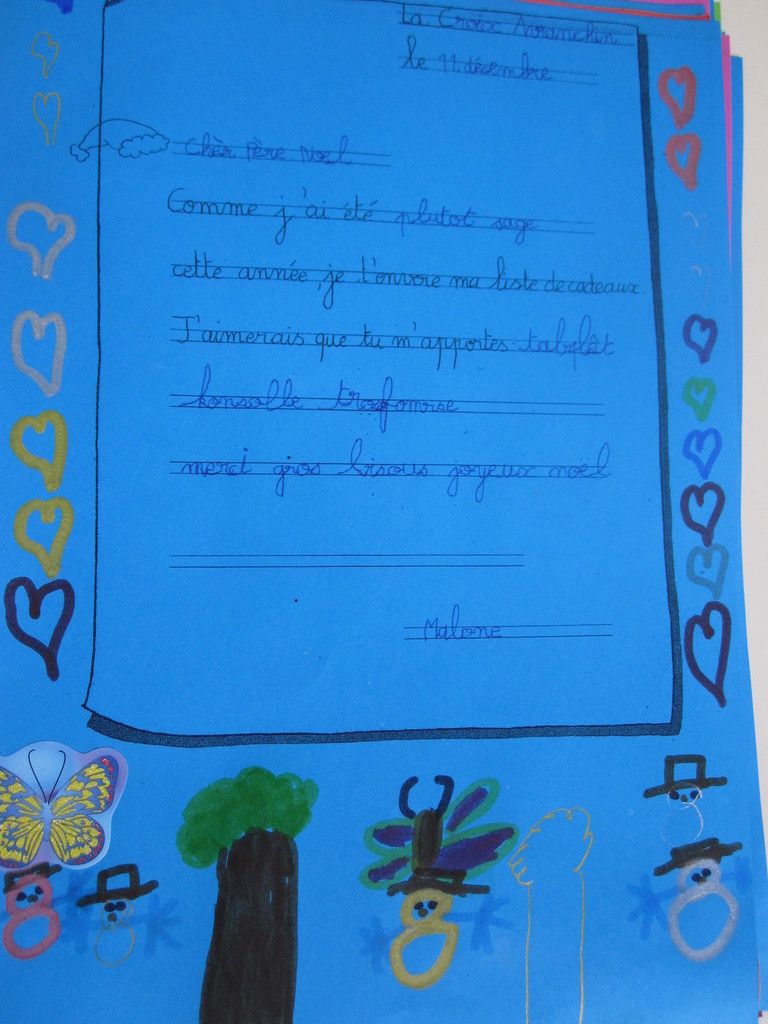 La Croix Avranchin
le 11 décembre
Chèr Père Noel
Comme j'ai été plutot sage
cette année, je t'envoie ma liste de cadeaux.
J'aimerais que tu m'apportes: tabplêt
konsolle
merci gros bisous joyeux noël
Malone